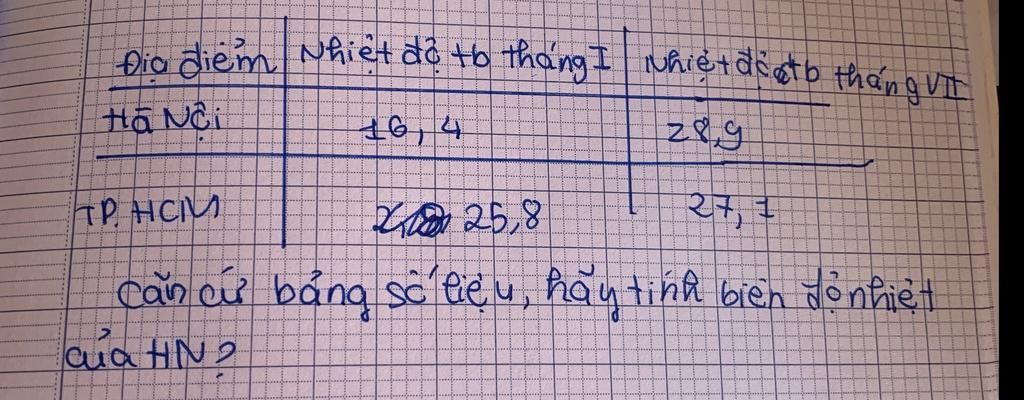 Địa điểm Nhiệt độ tb tháng I Nhiệt độ tb tháng VII
Hà Nội 16,4 28,9
TP. HCM 25,8 27,1
Căn cứ bảng số liệu, hãy tính biên độ nhiệt
của HN?